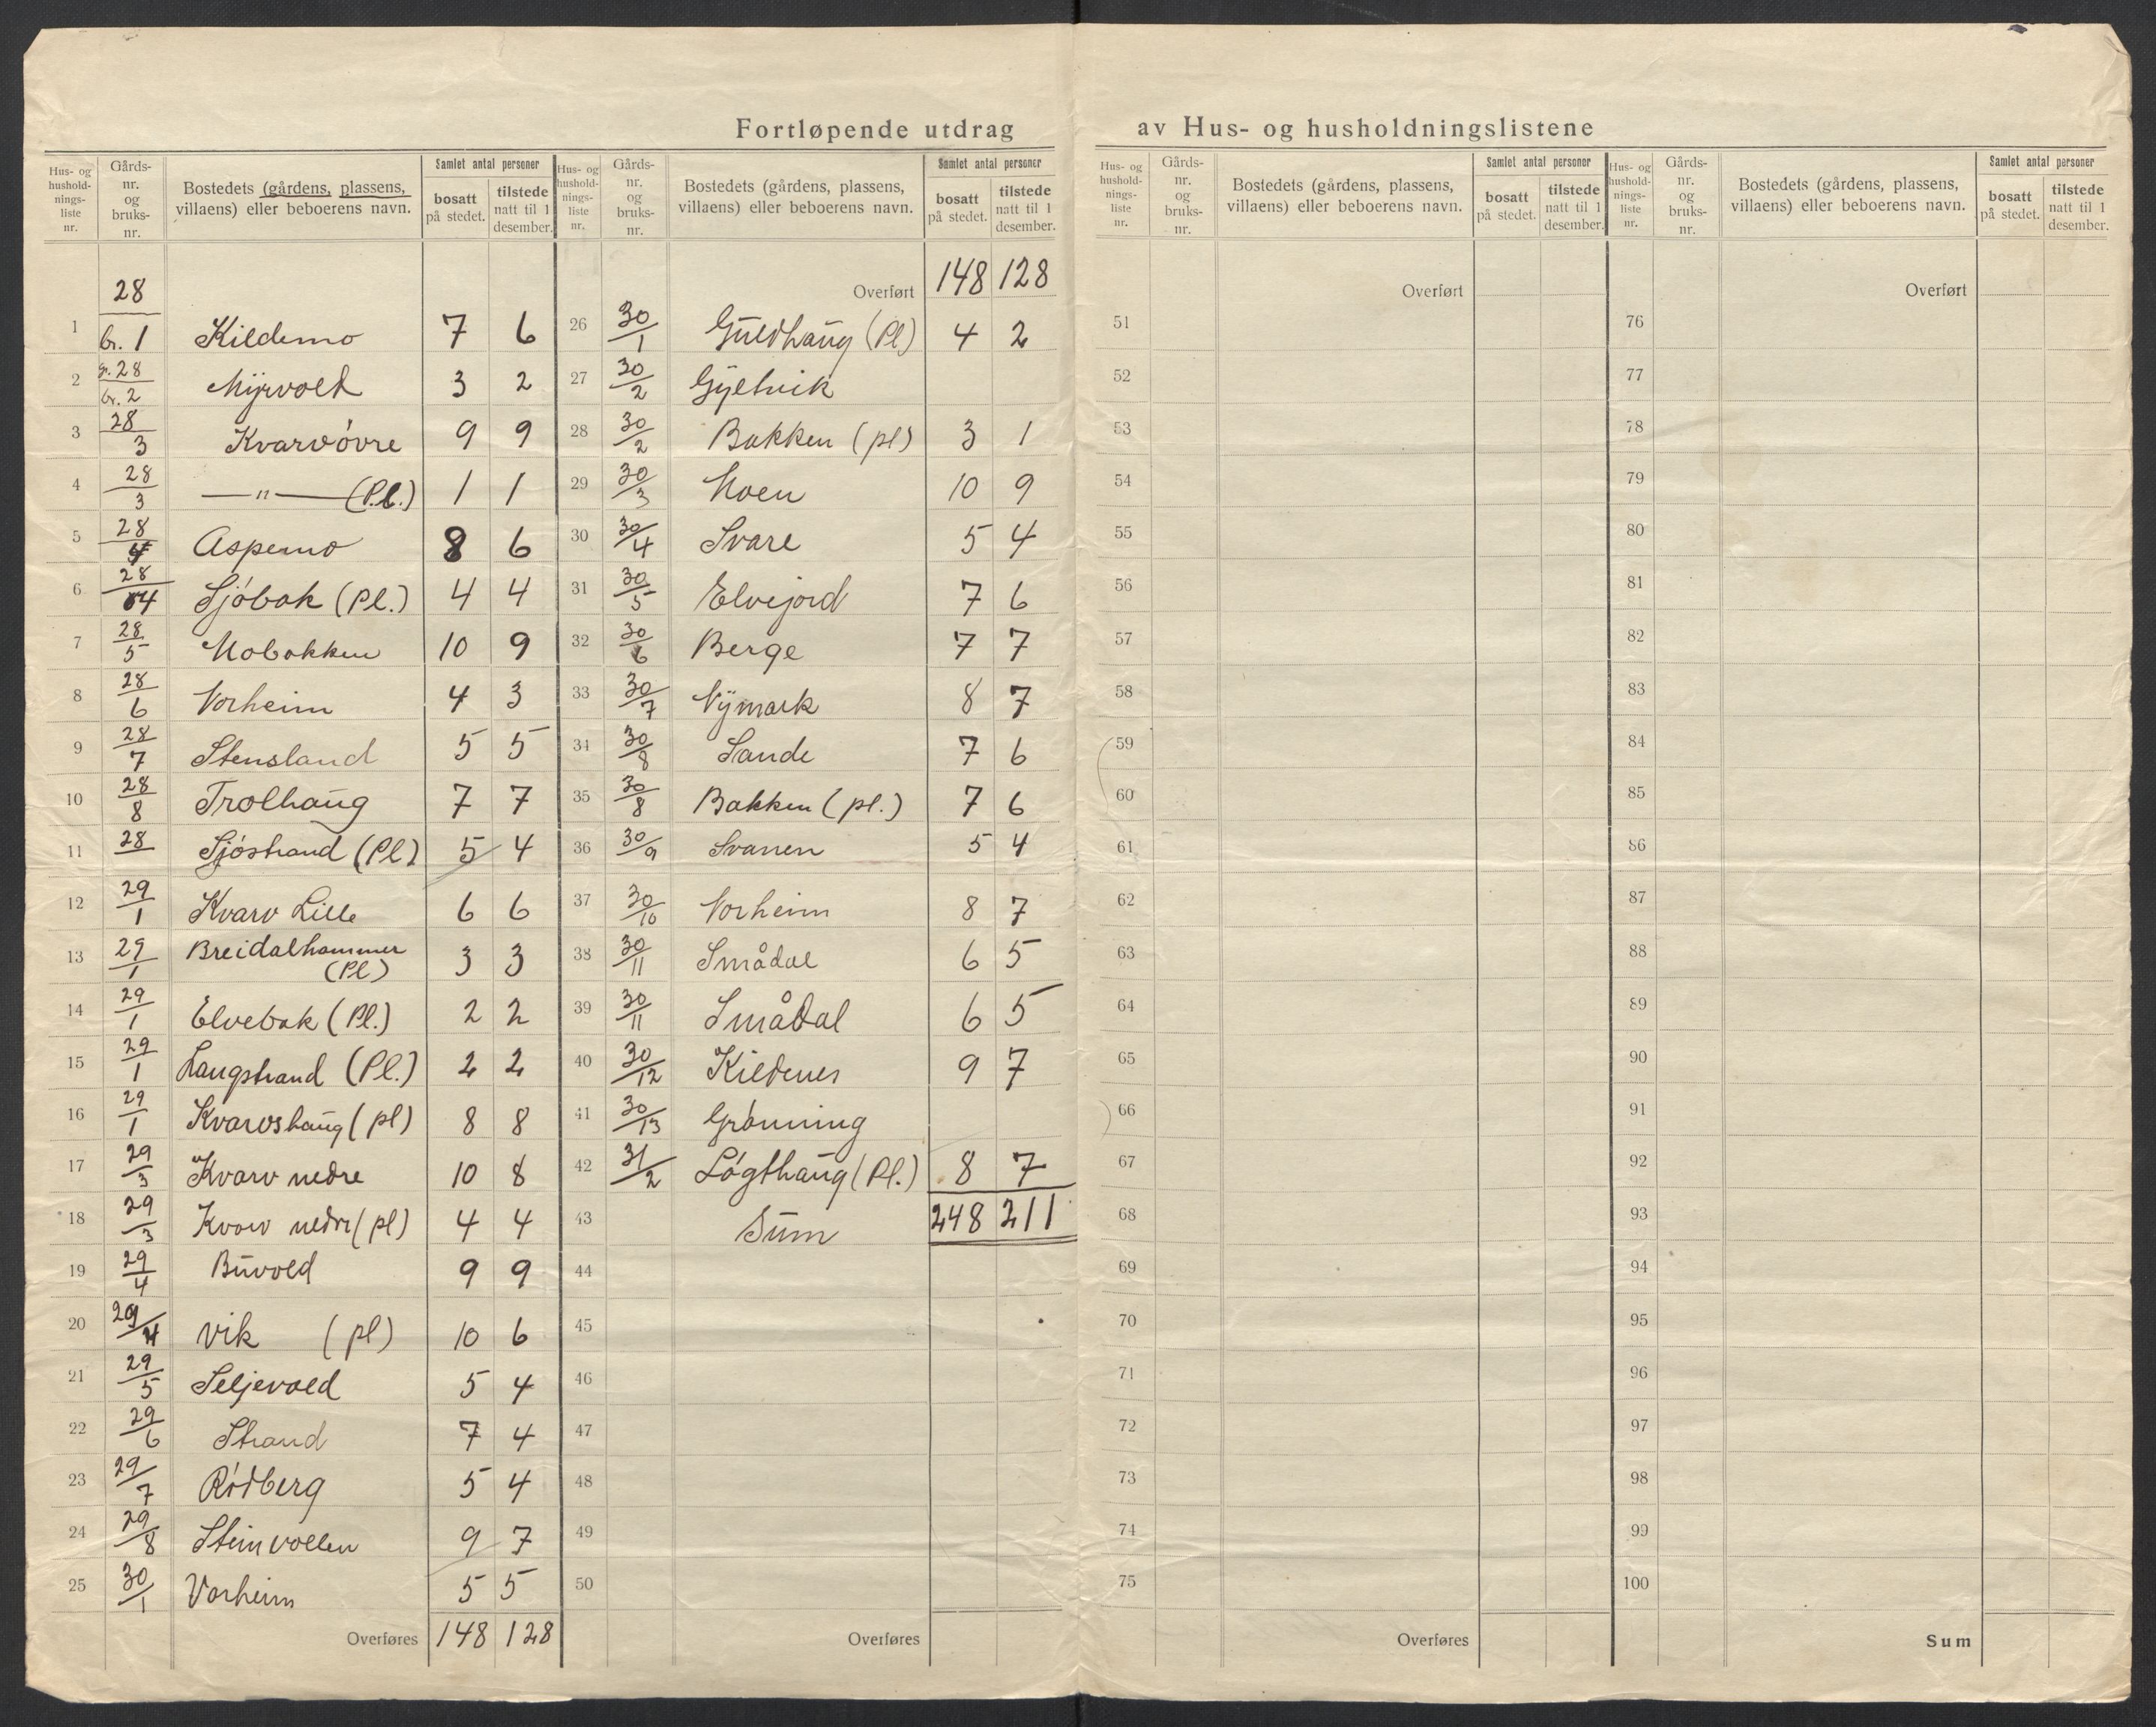 Fortløpende utdrag av Hus- og husholdningslistene
Hus- og hushold-nings-liste nr. Gårds-nr. og bruks-nr. Bostedets (gårdens, plassens, villaens) eller beboerens navn. Samlet antal personer bosatt på stedet. tilstede natt til 1 desember.
1 28 br. 1 Kildemo 7 6
2 gr. 28 br. 2 Myrvold 3 2
3 28/3 Kvarv övre 9 9
4 28/3 —"— (Pl.) 1 1
5 28/4 Aspemo 8 6
6 28/4 Sjöbak (Pl.) 4 4
7 28/5 Mobakken 10 9
8 28/6 Vorheim 4 3
9 28/7 Stensland 5 5
10 28/8 Trolhaug 7 7
11 28 Sjöstrand (Pl) 5 4
12 29/1 Kvarv Lille 6 6
13 29/1 Breidalhammer (Pl) 3 3
14 29/1 Elvebak (Pl.) 2 2
15 29/1 Langstrand (Pl.) 2 2
16 29/1 Kvarvshaug (pl) 8 8
17 29/3 Kvarv nedre 10 8
18 29/3 Kvarv nedre (pl) 4 4
19 29/4 Buvold 9 9
20 29/4 Vik (pl) 10 6
21 29/5 Seljevold 5 4
22 29/6 Strand 7 4
23 29/7 Rödberg 5 4
24 29/8 Steinvollen 9 7
25 30/1 Vorheim 5 5
Overføres 148 128
Hus- og hushold-nings-liste nr. Gårds-nr. og bruks-nr. Bostedets (gårdens, plassens, villaens) eller beboerens navn. Samlet antal personer bosatt på stedet. tilstede natt til 1 desember.
Overført 148 128
26 30/1 Guldhaug (Pl) 4 2
27 30/2 Gjelvik
28 30/2 Bakken (pl) 3 1
29 30/3 Moen 10 9
30 30/4 Svare 5 4
31 30/5 Elvejord 7 6
32 30/6 Berge 7 7
33 30/7 Nymark 8 7
34 30/8 Sande 7 6
35 30/8 Bakken (pl.) 7 6
36 30/9 Svanen 5 4
37 30/10 Vorheim 8 7
38 30/11 Smådal 6 5
39 30/11 Smådal 6 5
40 30/12 Kildenes 9 7
41 30/13 Grönning
42 31/2 Lögthaug (Pl.) 8 7
43 Sum 248 211
44
45
46
47
48
49
50
Overføres
Hus- og hushold-nings-liste nr. Gårds-nr. og bruks-nr. Bostedets (gårdens, plassens, villaens) eller beboerens navn. Samlet antal personer bosatt på stedet. tilstede natt til 1 desember.
Overført
51
52
53
54
55
56
57
58
59
60
61
62
63
64
65
66
67
68
69
70
71
72
73
74
75
Overføres
Hus- og hushold-nings-liste nr. Gårds-nr. og bruks-nr. Bostedets (gårdens, plassens, villaens) eller beboerens navn. Samlet antal personer bosatt på stedet. tilstede natt til 1 desember.
Overført
76
77
78
79
80
81
82
83
84
85
86
87
88
89
90
91
92
93
94
95
96
97
98
99
100
Sum